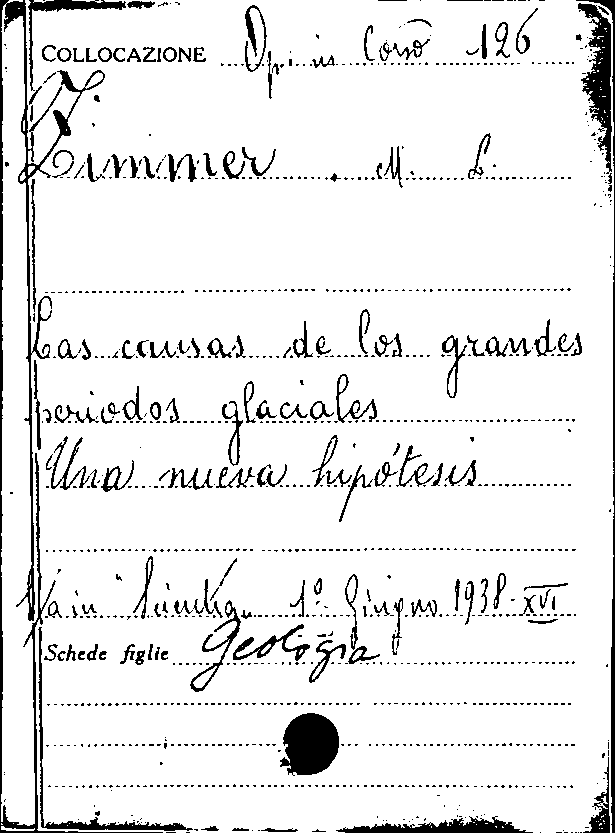 COLLOCAZIONE Op. in Corso 126
Zimmer . M. L.
Las causas de los grandes
periodos glaciales
Una nueva hipótesis
in "Scientia" 1º Giugno 1938-XVI
Schede figlie Geologia